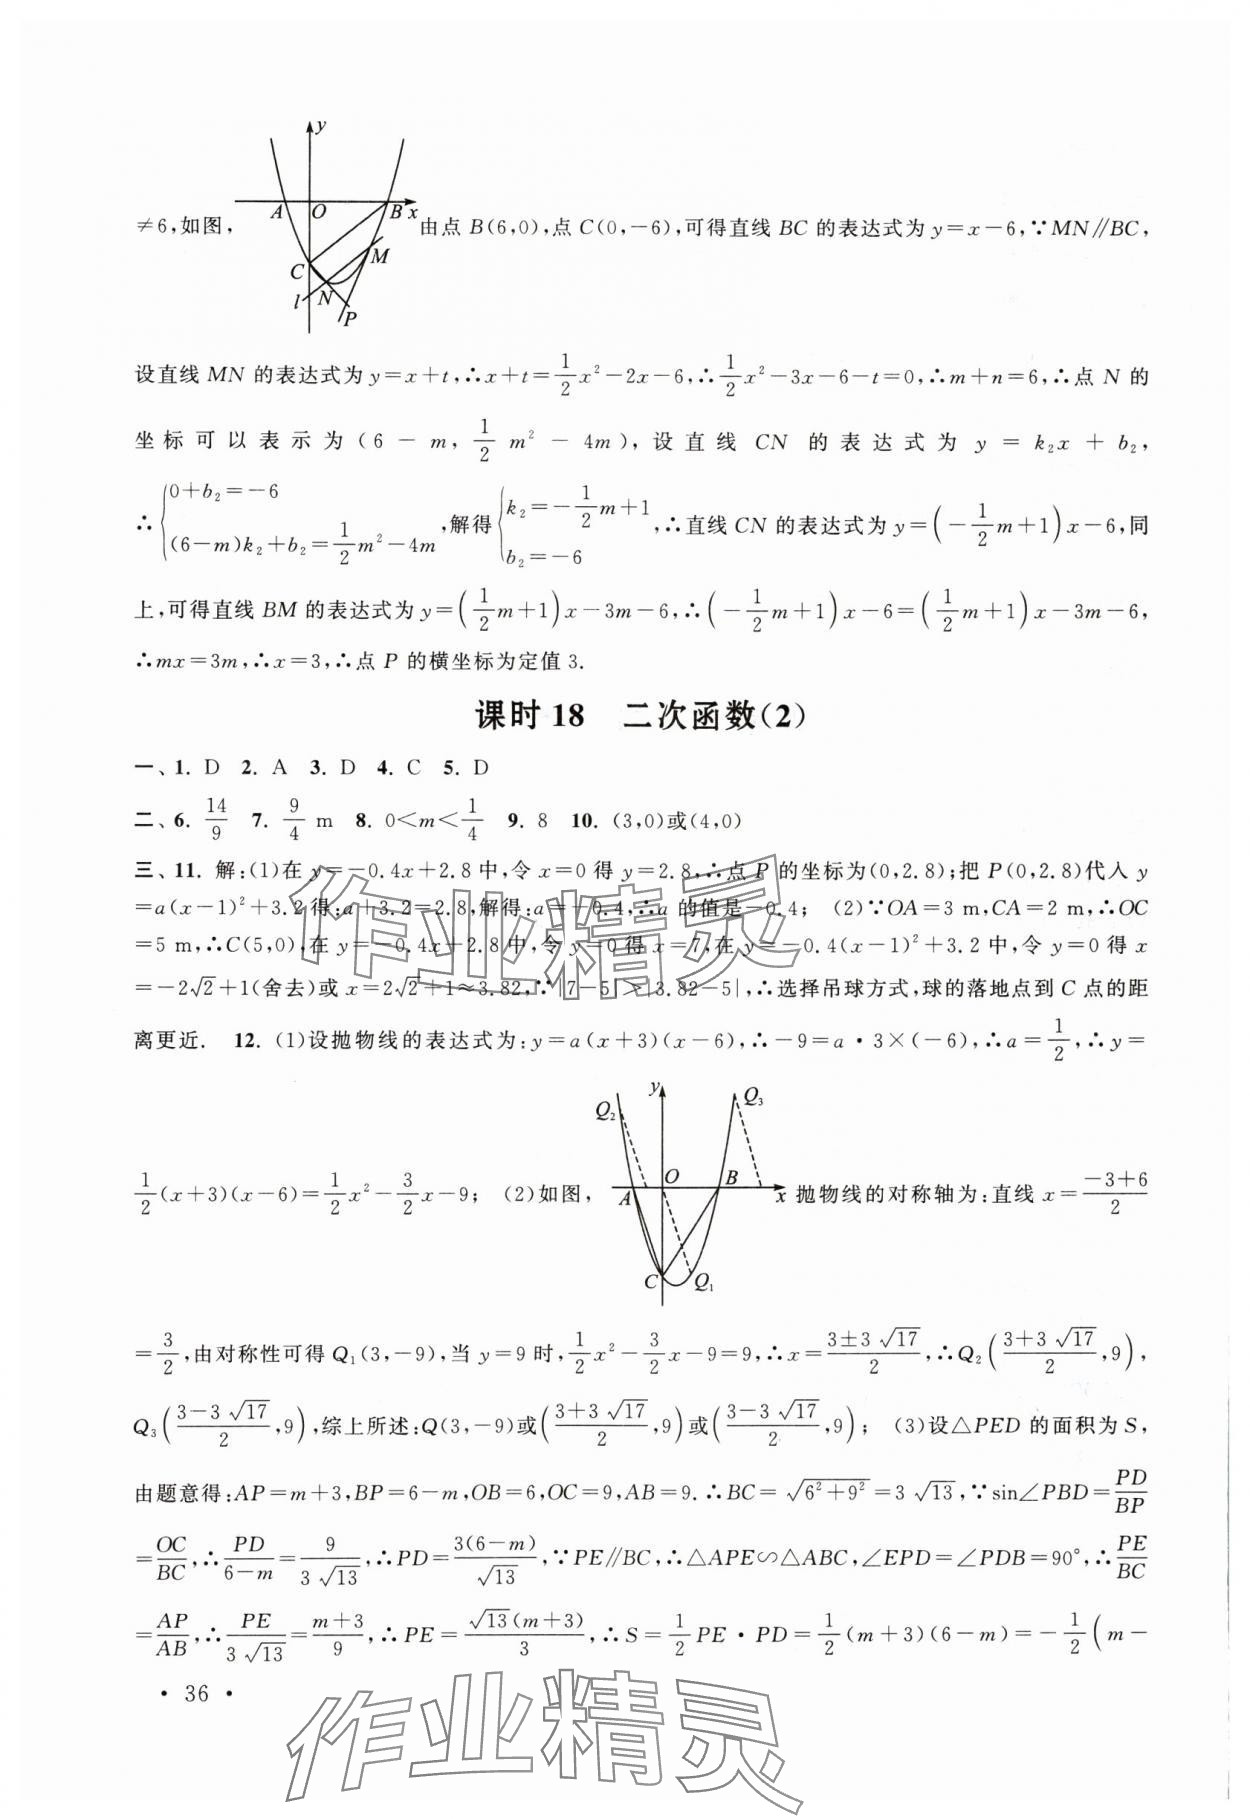 ≠6,如图,
y
A O B x
C M
l N P
由点 B(6,0),点 C(0,-6),可得直线 BC 的表达式为 y=x-6,∵MN∥BC,
设直线 MN 的表达式为 y=x+t,∴x+t=1/2x²-2x-6,∴1/2x²-3x-6-t=0,∴m+n=6,∴点 N 的
坐标可以表示为(6-m,1/2m²-4m),设直线 CN 的表达式为 y=k₂x+b₂,
∴{0+b₂=-6 (6-m)k₂+b₂=1/2m²-4m,解得{k₂=-1/2m+1 b₂=-6,∴直线 CN 的表达式为 y=(-1/2m+1)x-6,同
上,可得直线 BM 的表达式为 y=(1/2m+1)x-3m-6,∴(-1/2m+1)x-6=(1/2m+1)x-3m-6,
∴mx=3m,∴x=3,∴点 P 的横坐标为定值 3.
课时 18 二次函数(2)
一、1. D 2. A 3. D 4. C 5. D
二、6. 14/9 7. 9/4 m 8. 0<m<1/4 9. 8 10. (3,0)或(4,0)
三、11. 解:(1)在 y=-0.4x+2.8 中,令 x=0 得 y=2.8,∴点 P 的坐标为(0,2.8);把 P(0,2.8)代入 y
=a(x-1)²+3.2得:a+3.2=2.8,解得:a=-0.4,∴a 的值是-0.4; (2)∵OA=3 m,CA=2 m,∴OC
=5 m,∴C(5,0),在 y=-0.4x+2.8 中,令 y=0 得 x=7,在 y=-0.4(x-1)²+3.2 中,令 y=0 得 x
=-2√2+1(舍去)或 x=2√2+1≈3.82,∵|7-5|>|3.82-5|,∴选择吊球方式,球的落地点到 C 点的距
离更近. 12. (1)设抛物线的表达式为:y=a(x+3)(x-6),∴-9=a·3×(-6),∴a=1/2,∴y=
1/2(x+3)(x-6)=1/2x²-3/2x-9; (2)如图,
y
Q₂ Q₃
A O B x
C Q₁
抛物线的对称轴为:直线 x=(-3+6)/2
=3/2,由对称性可得 Q₁(3,-9),当 y=9 时,1/2x²-3/2x-9=9,∴x=(3±3√17)/2,∴Q₂((3+3√17)/2,9),
Q₃((3-3√17)/2,9),综上所述:Q(3,-9)或((3+3√17)/2,9)或((3-3√17)/2,9); (3)设△PED 的面积为 S,
由题意得:AP=m+3,BP=6-m,OB=6,OC=9,AB=9.∴BC=√(6²+9²)=3√13,∵sin∠PBD=PD/BP
=OC/BC,∴PD/(6-m)=9/(3√13),∴PD=3(6-m)/√13,∵PE∥BC,∴△APE∽△ABC,∠EPD=∠PDB=90°,∴PE/BC
=AP/AB,∴PE/(3√13)=(m+3)/9,∴PE=√13(m+3)/3,∴S=1/2PE·PD=1/2(m+3)(6-m)=-1/2(m-
· 36 ·
作业精灵
作业精灵